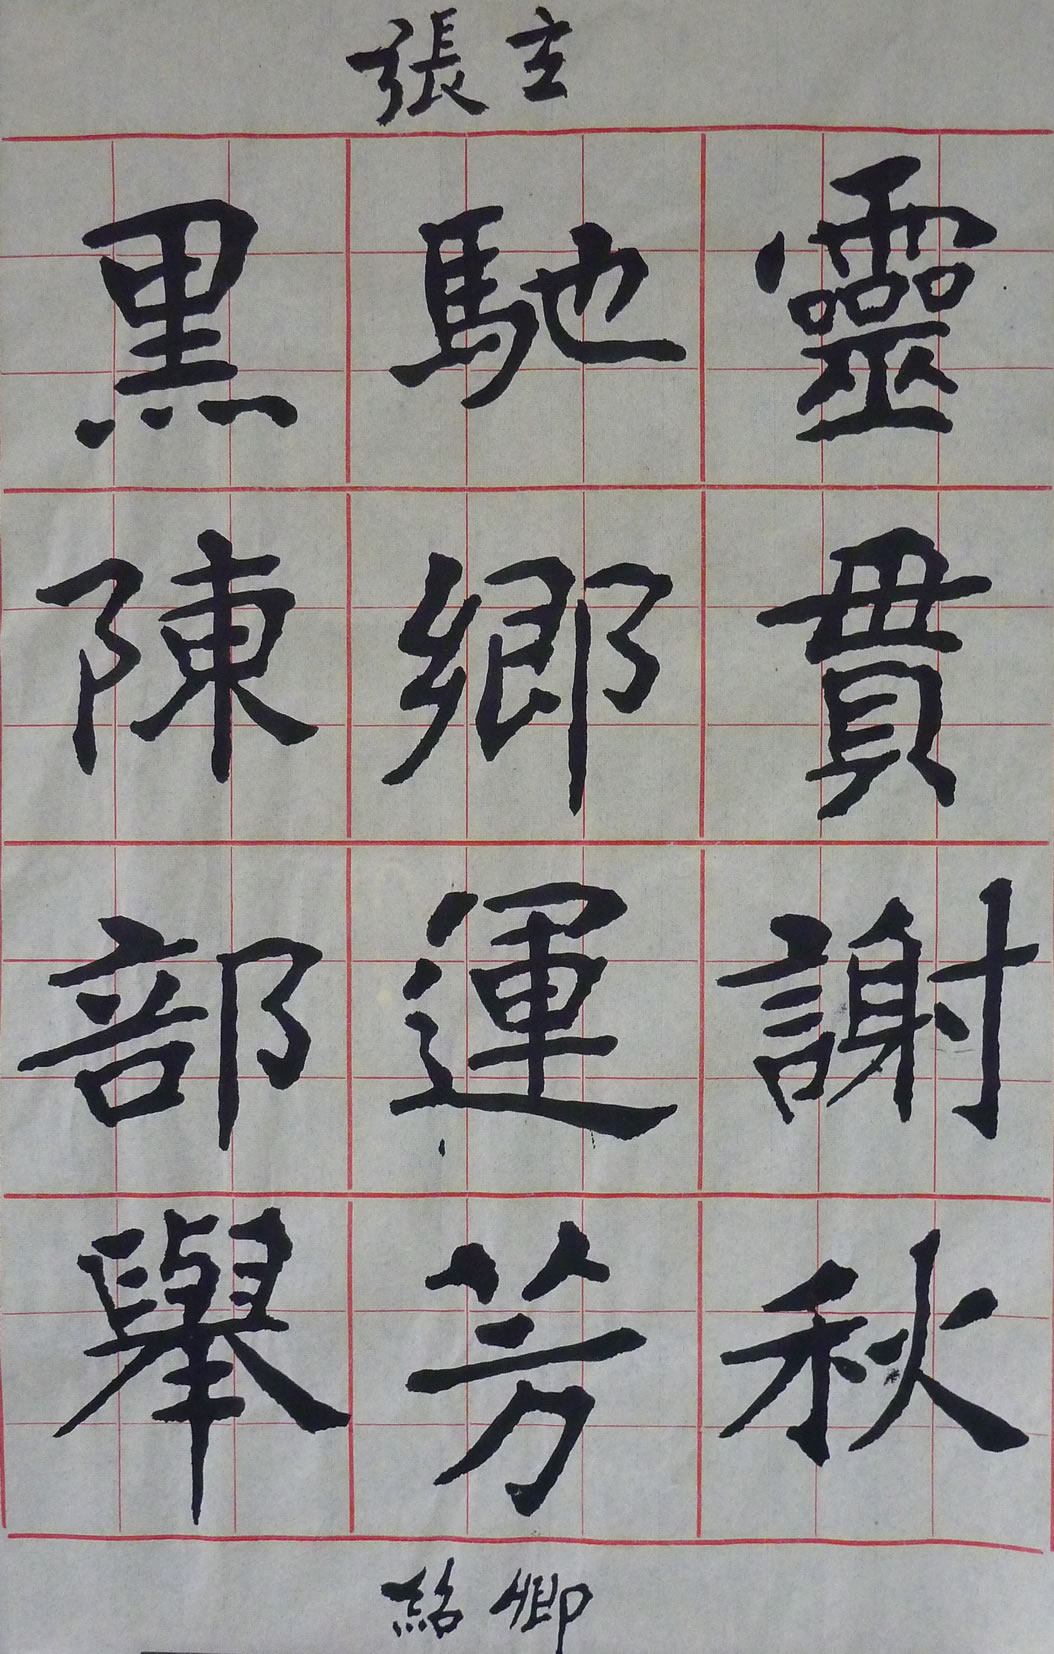 張玄
靈貫謝秋
馳鄉運芳
黑陳部舉
紹卿